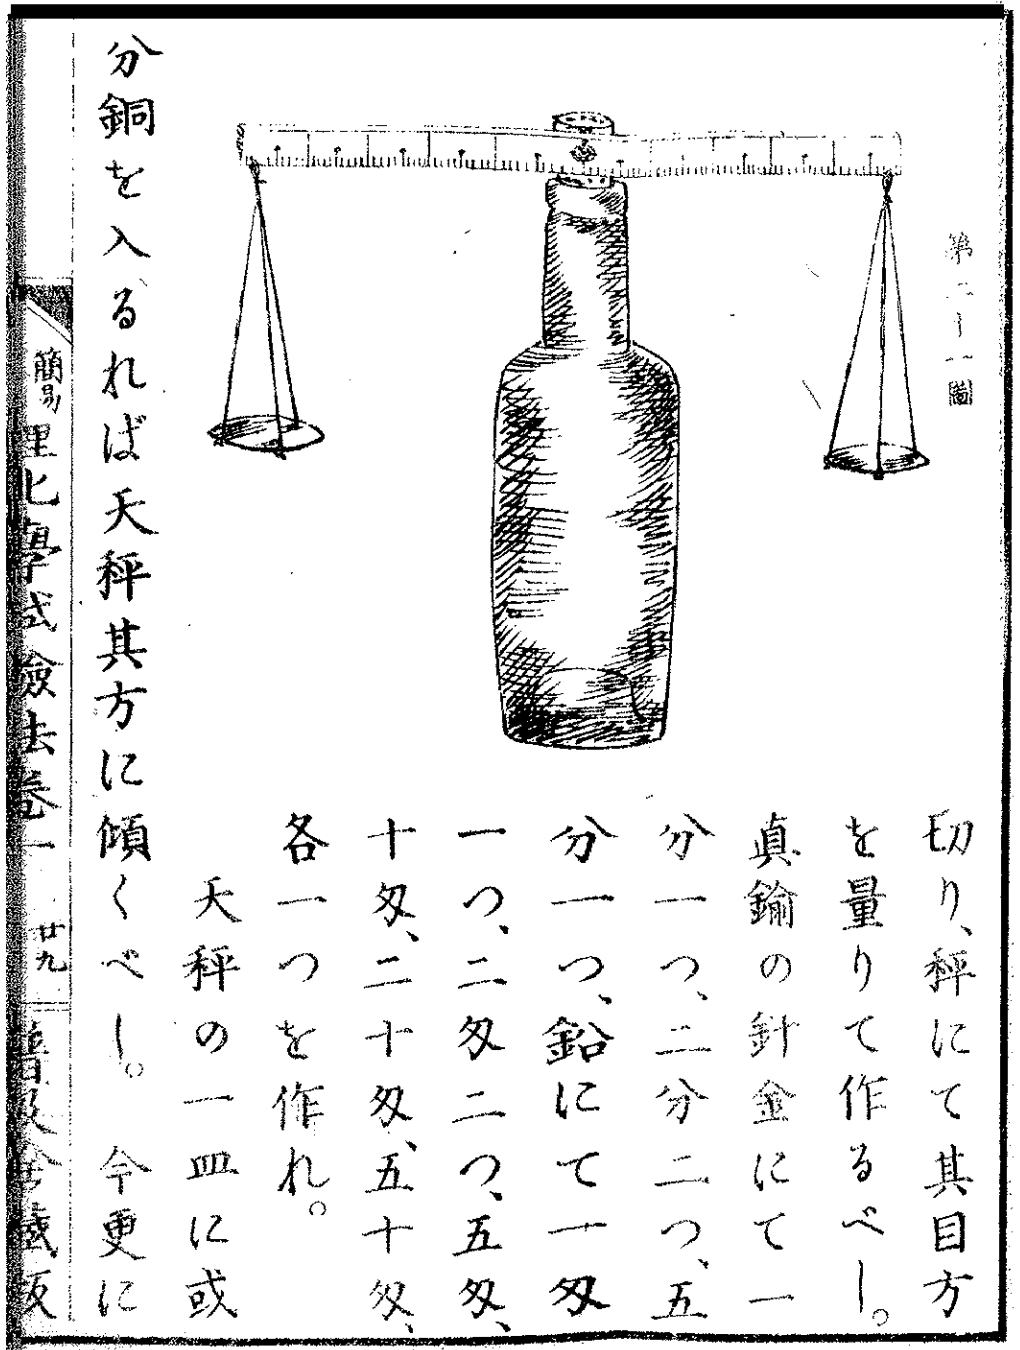 第二十一圖
切り、秤にて其目方
を量りて作るべし。
真鍮の針金にて一
分一つ、二分二つ、五
分一つ、鉛にて一匁
一つ、二匁二つ、五匁、
十匁、二十匁、五十匁、
各一つを作れ。
天秤の一皿に或
分銅を入るれば天秤其方に傾くべし。今更に
簡易理化學試驗法卷一 廿九 普及舍藏版